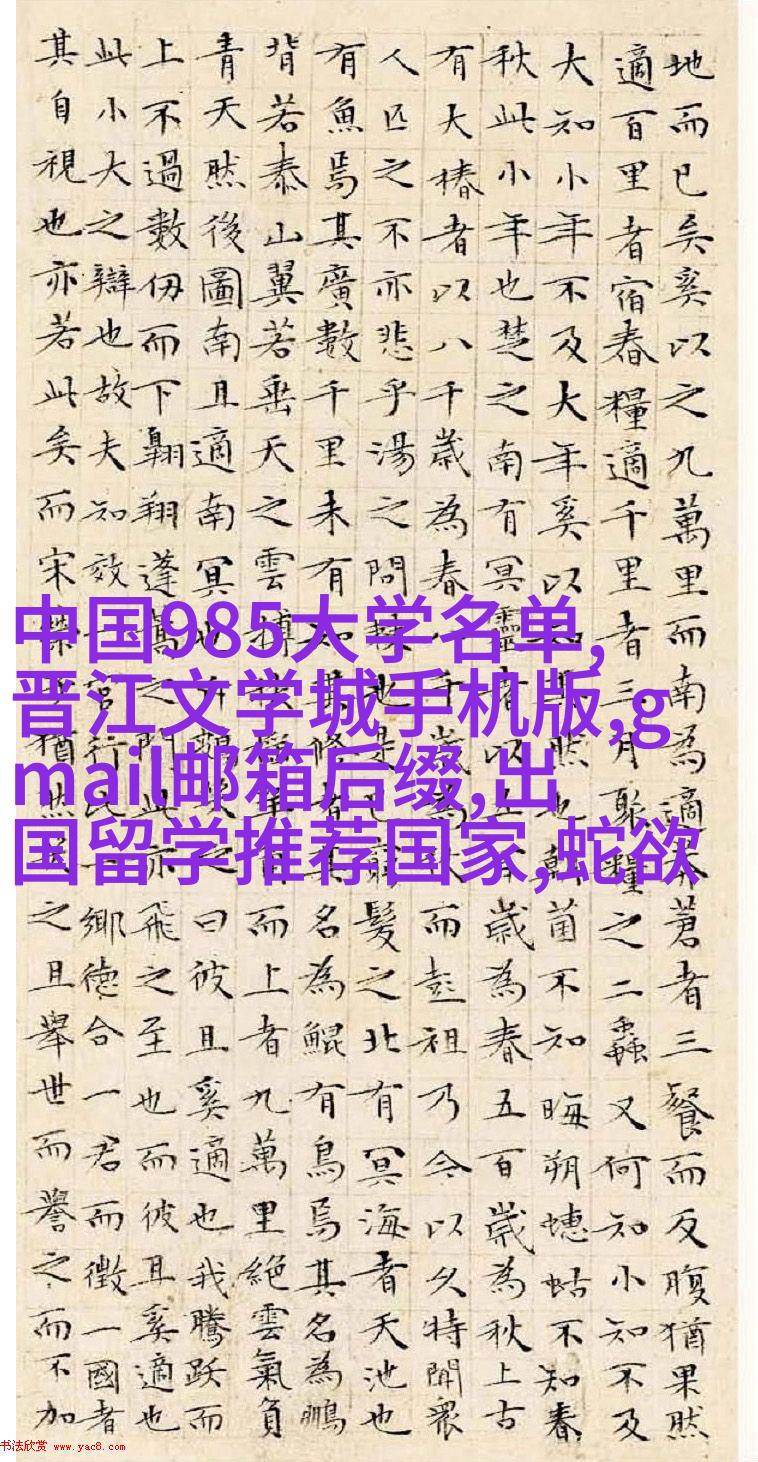 地而已矣奚以之九萬里而南為適莽蒼者三餐而反腹猶果然
適百里者宿舂糧適千里者三月聚糧之二蟲又何知小知不及
大知小年不及大年奚以知其然也朝菌不知晦朔蟪蛄不知春
秋此小年也楚之南有冥靈者以五百歲為春五百歲為秋上古
有大椿者以八千歲為春八千歲為秋而彭祖乃今以久特聞衆
人匹之不亦悲乎湯之問棘也是已窮髮之北有冥海者天池也
有魚焉其廣數千里未有知其修者其名為鯤有鳥焉其名為鵬
背若泰山翼若垂天之雲摶扶搖羊角而上者九萬里絕雲氣負
青天然後圖南且適南冥也斥鷃笑之曰彼且奚適也我騰躍而
上不過數仞而下翱翔蓬蒿之間此亦飛之至也而彼且奚適也
此小大之辯也故夫知效一官行比一鄉德合一君而徵一國者
其自視也亦若此矣而宋榮子猶然笑之且舉世而譽之而不加
中国985大学名单,
晋江文学城手机版,g
mail邮箱后缀,出
国留学推荐国家,蛇欲
书法欣赏 www.yac8.com